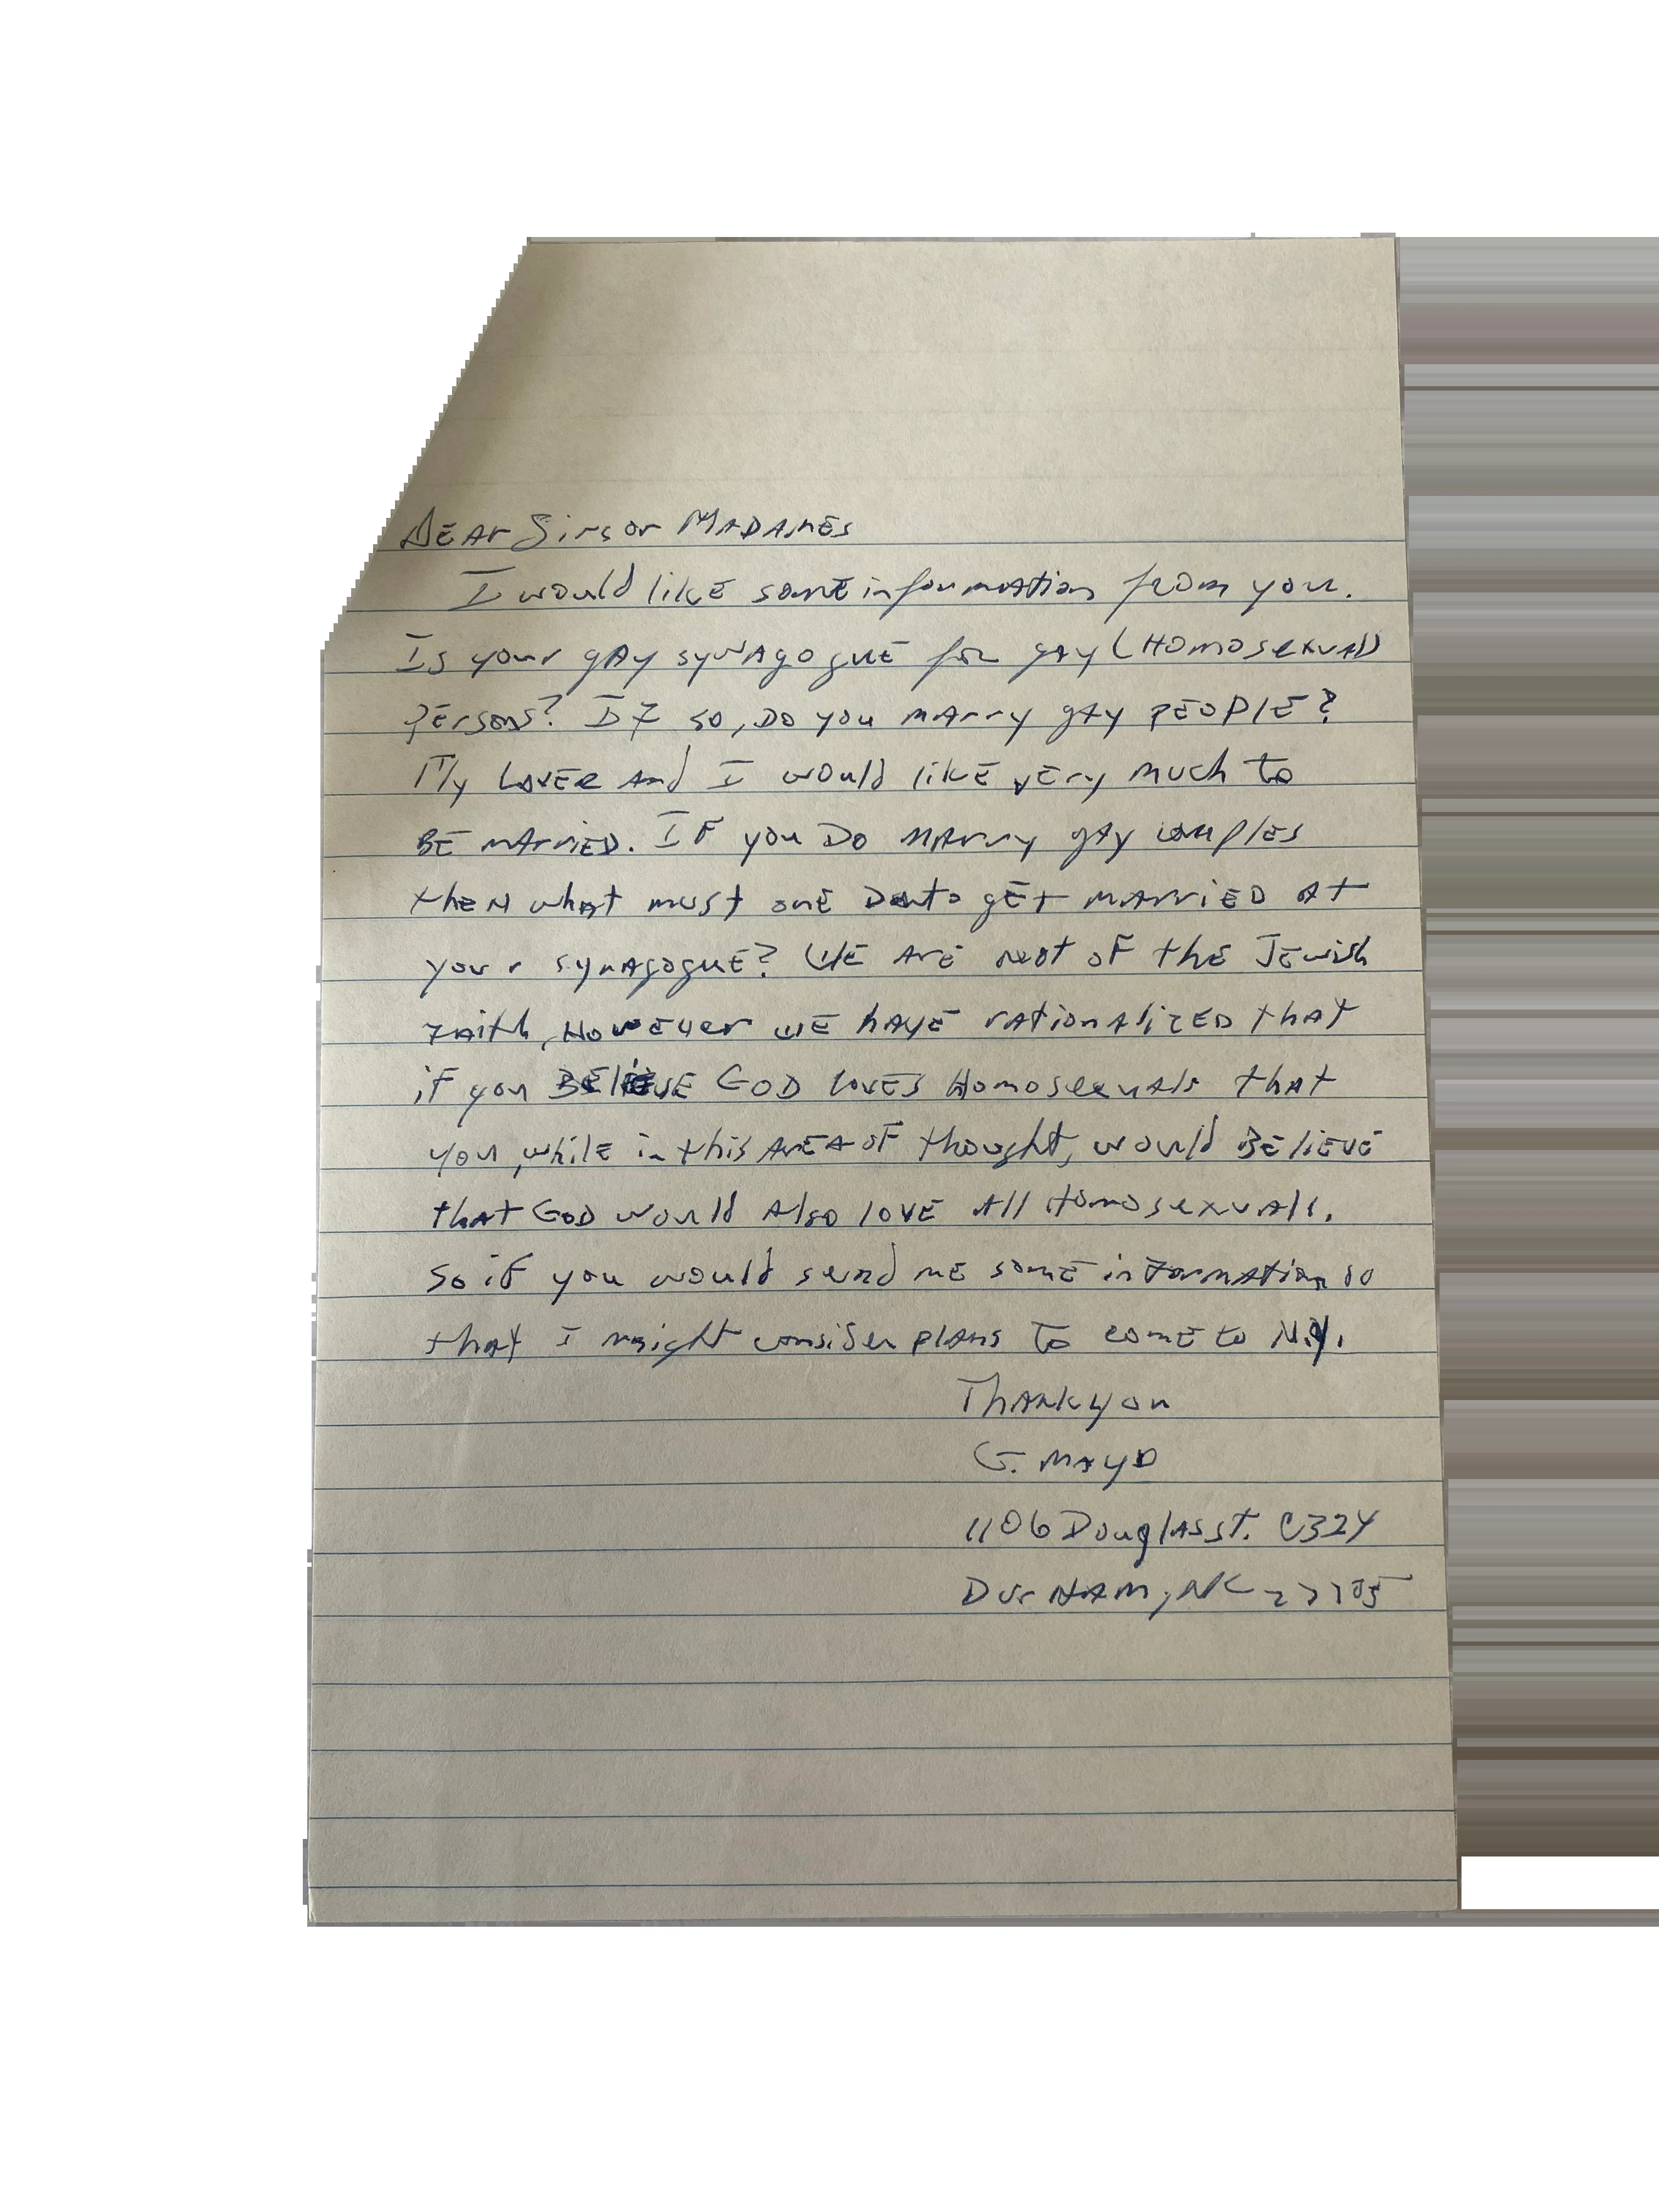 DEAr Sirs or MADAMES
I would likE somE information from you.
Is your gAy synAgoguE for gAy (Homosexual)
Persons? If so, Do you mArry gAy PEOPlE?
My LovEr And I would likE vEry much to
BE mArriED. IF you Do MArry gAy couples
theN whAt must onE Do to gEt mArriED At
your synAgoguE? WE ArE not oF thE JEwish
Faith, HowEver wE hAvE rAtionAlizED thAt
iF you BEliEvE GOD lovEs HomosexuAls thAt
you, whilE in this ArEA oF thought, would BEliEvE
thAt GOD would Also lovE All HomosexuAls.
So iF you would send mE somE informAtion so
thAt I might consider plAns to comE to N.Y.
ThAnk you
G. MAyo
1106 DouglAs st. C324
DurHAM, NC 27705